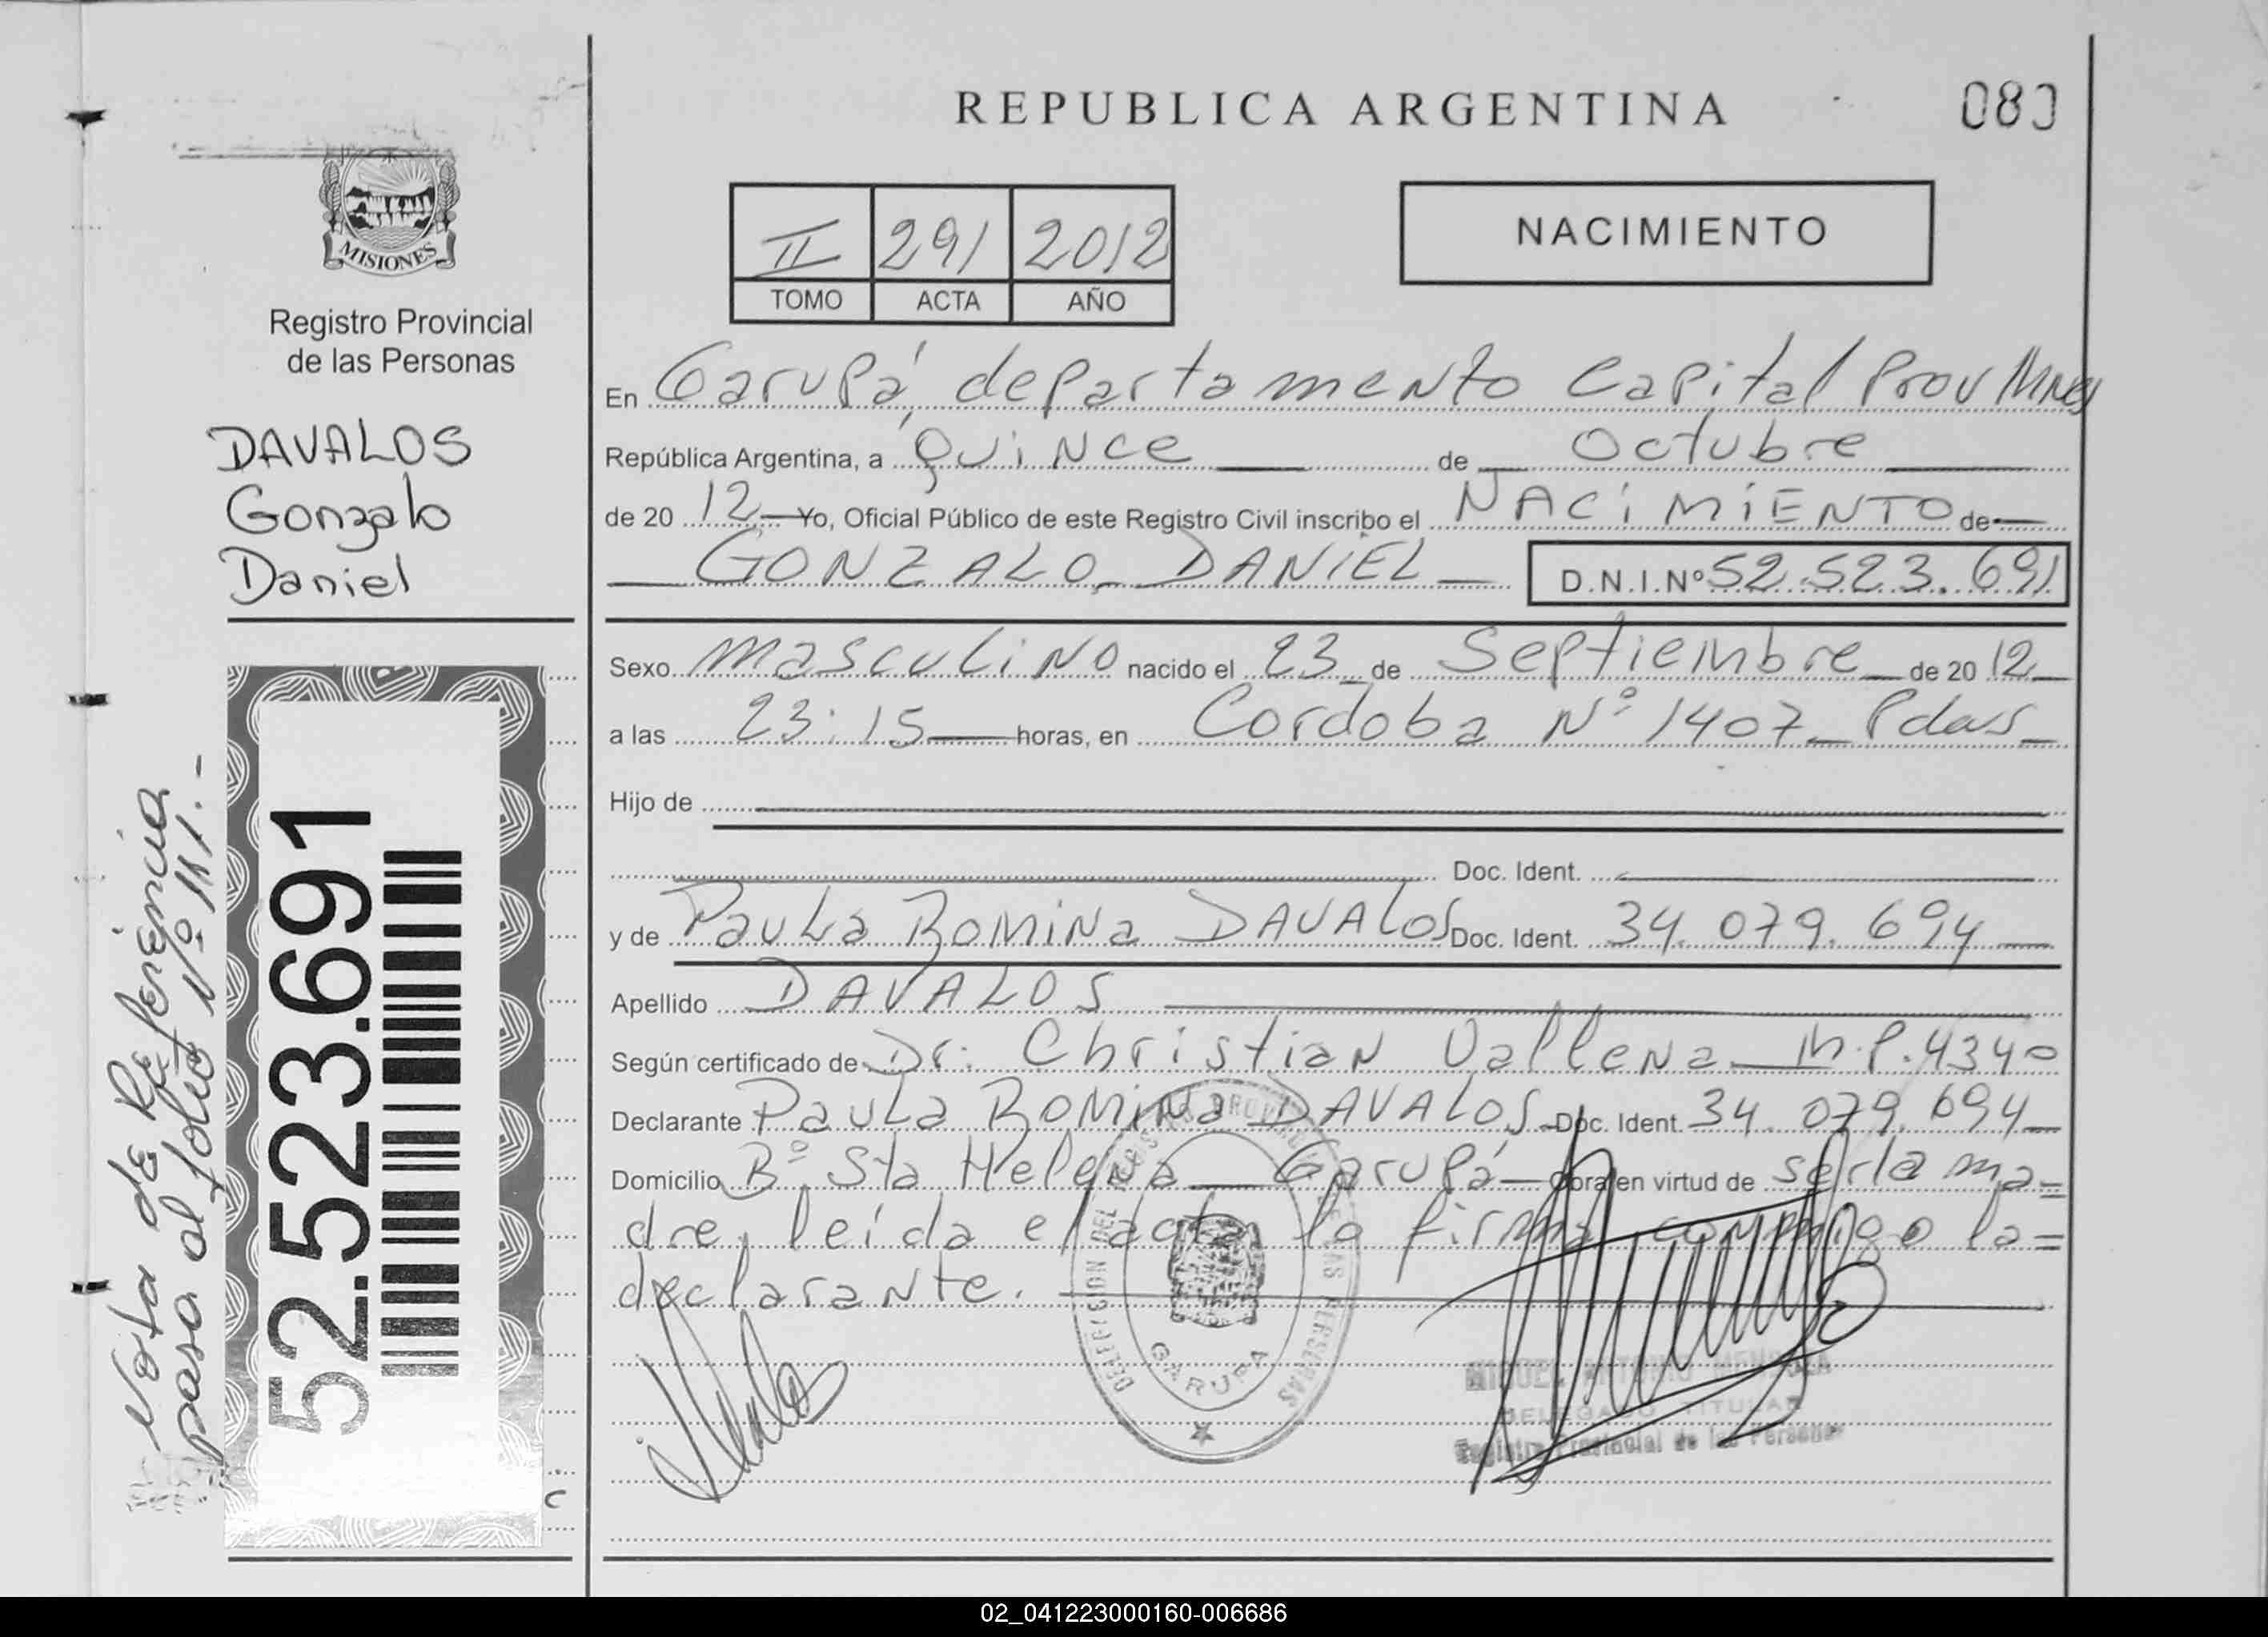 REPUBLICA ARGENTINA
080
MISIONES
Registro Provincial
de las Personas
DAVALOS
Gonzalo
Daniel
II 291 2012
TOMO ACTA AÑO
NACIMIENTO
En Garupá, departamento Capital Prov Mnes
República Argentina, a Quince de Octubre
de 20 12 Yo, Oficial Público de este Registro Civil inscribo el NACIMIENTO de
GONZALO DANIEL D.N.I.Nº 52.523.691
Sexo masculino nacido el 23 de Septiembre de 20 12
a las 23:15 horas, en Cordoba Nº 1407 Pdas
Hijo de
Doc. Ident.
y de Paula Romina DAVALOS Doc. Ident. 34.079.694
Apellido DAVALOS
Según certificado de Dr. Christian Vallena M.P.4340
Declarante Paula Romina DAVALOS Doc. Ident 34.079.694
Domicilio Bº Sta Helena Garupá Obra en virtud de ser la ma=
dre, leída el acta la firma conmigo la=
declarante.
52.523.691
Nota de Referencia
paso al folio Nº 111.-
DELEGACION DEL REGISTRO PROVINCIAL DE LAS PERSONAS
GARUPA
MIGUEL ANTONIO MENDOZA
DELEGADO TITULAR
Registro Provincial de las Personas
02_041223000160-006686